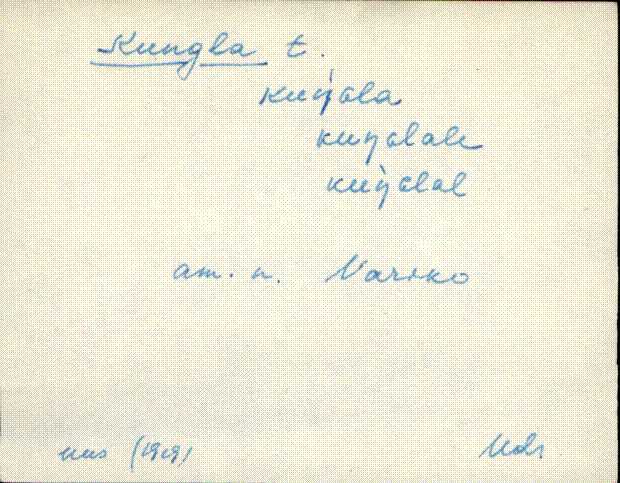 Kungla t.
kuŋ̀ɢla
kuŋɢlale
kuŋ̀ɢlal
am. n. Variko
uus (1919)